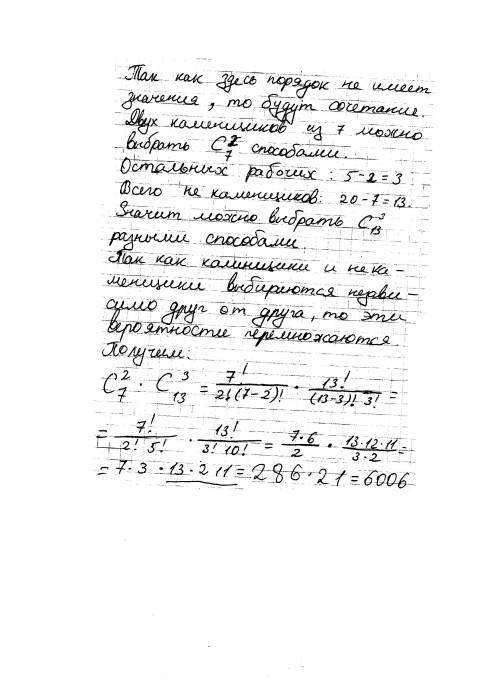 Так как здесь порядок не имеет
значения, то будут сочетание.
Двух каменщиков из 7 можно
выбрать C₇² способами.
Остальных рабочих: 5-2=3
Всего не каменщиков: 20-7=13.
Значит можно выбрать C₁₃³
разными способами.
Так как каменщики и не ка-
менщики выбираются незави-
симо друг от друга, то эти
вероятности перемножаются.
Получем:
C₇² · C₁₃³ = 7!/2!(7-2)! · 13!/(13-3)! 3! =
= 7!/2! 5! · 13!/3! 10! = 7·6/2 · 13·12·11/3·2 =
= 7·3·13·2 11 = 286·21 = 6006